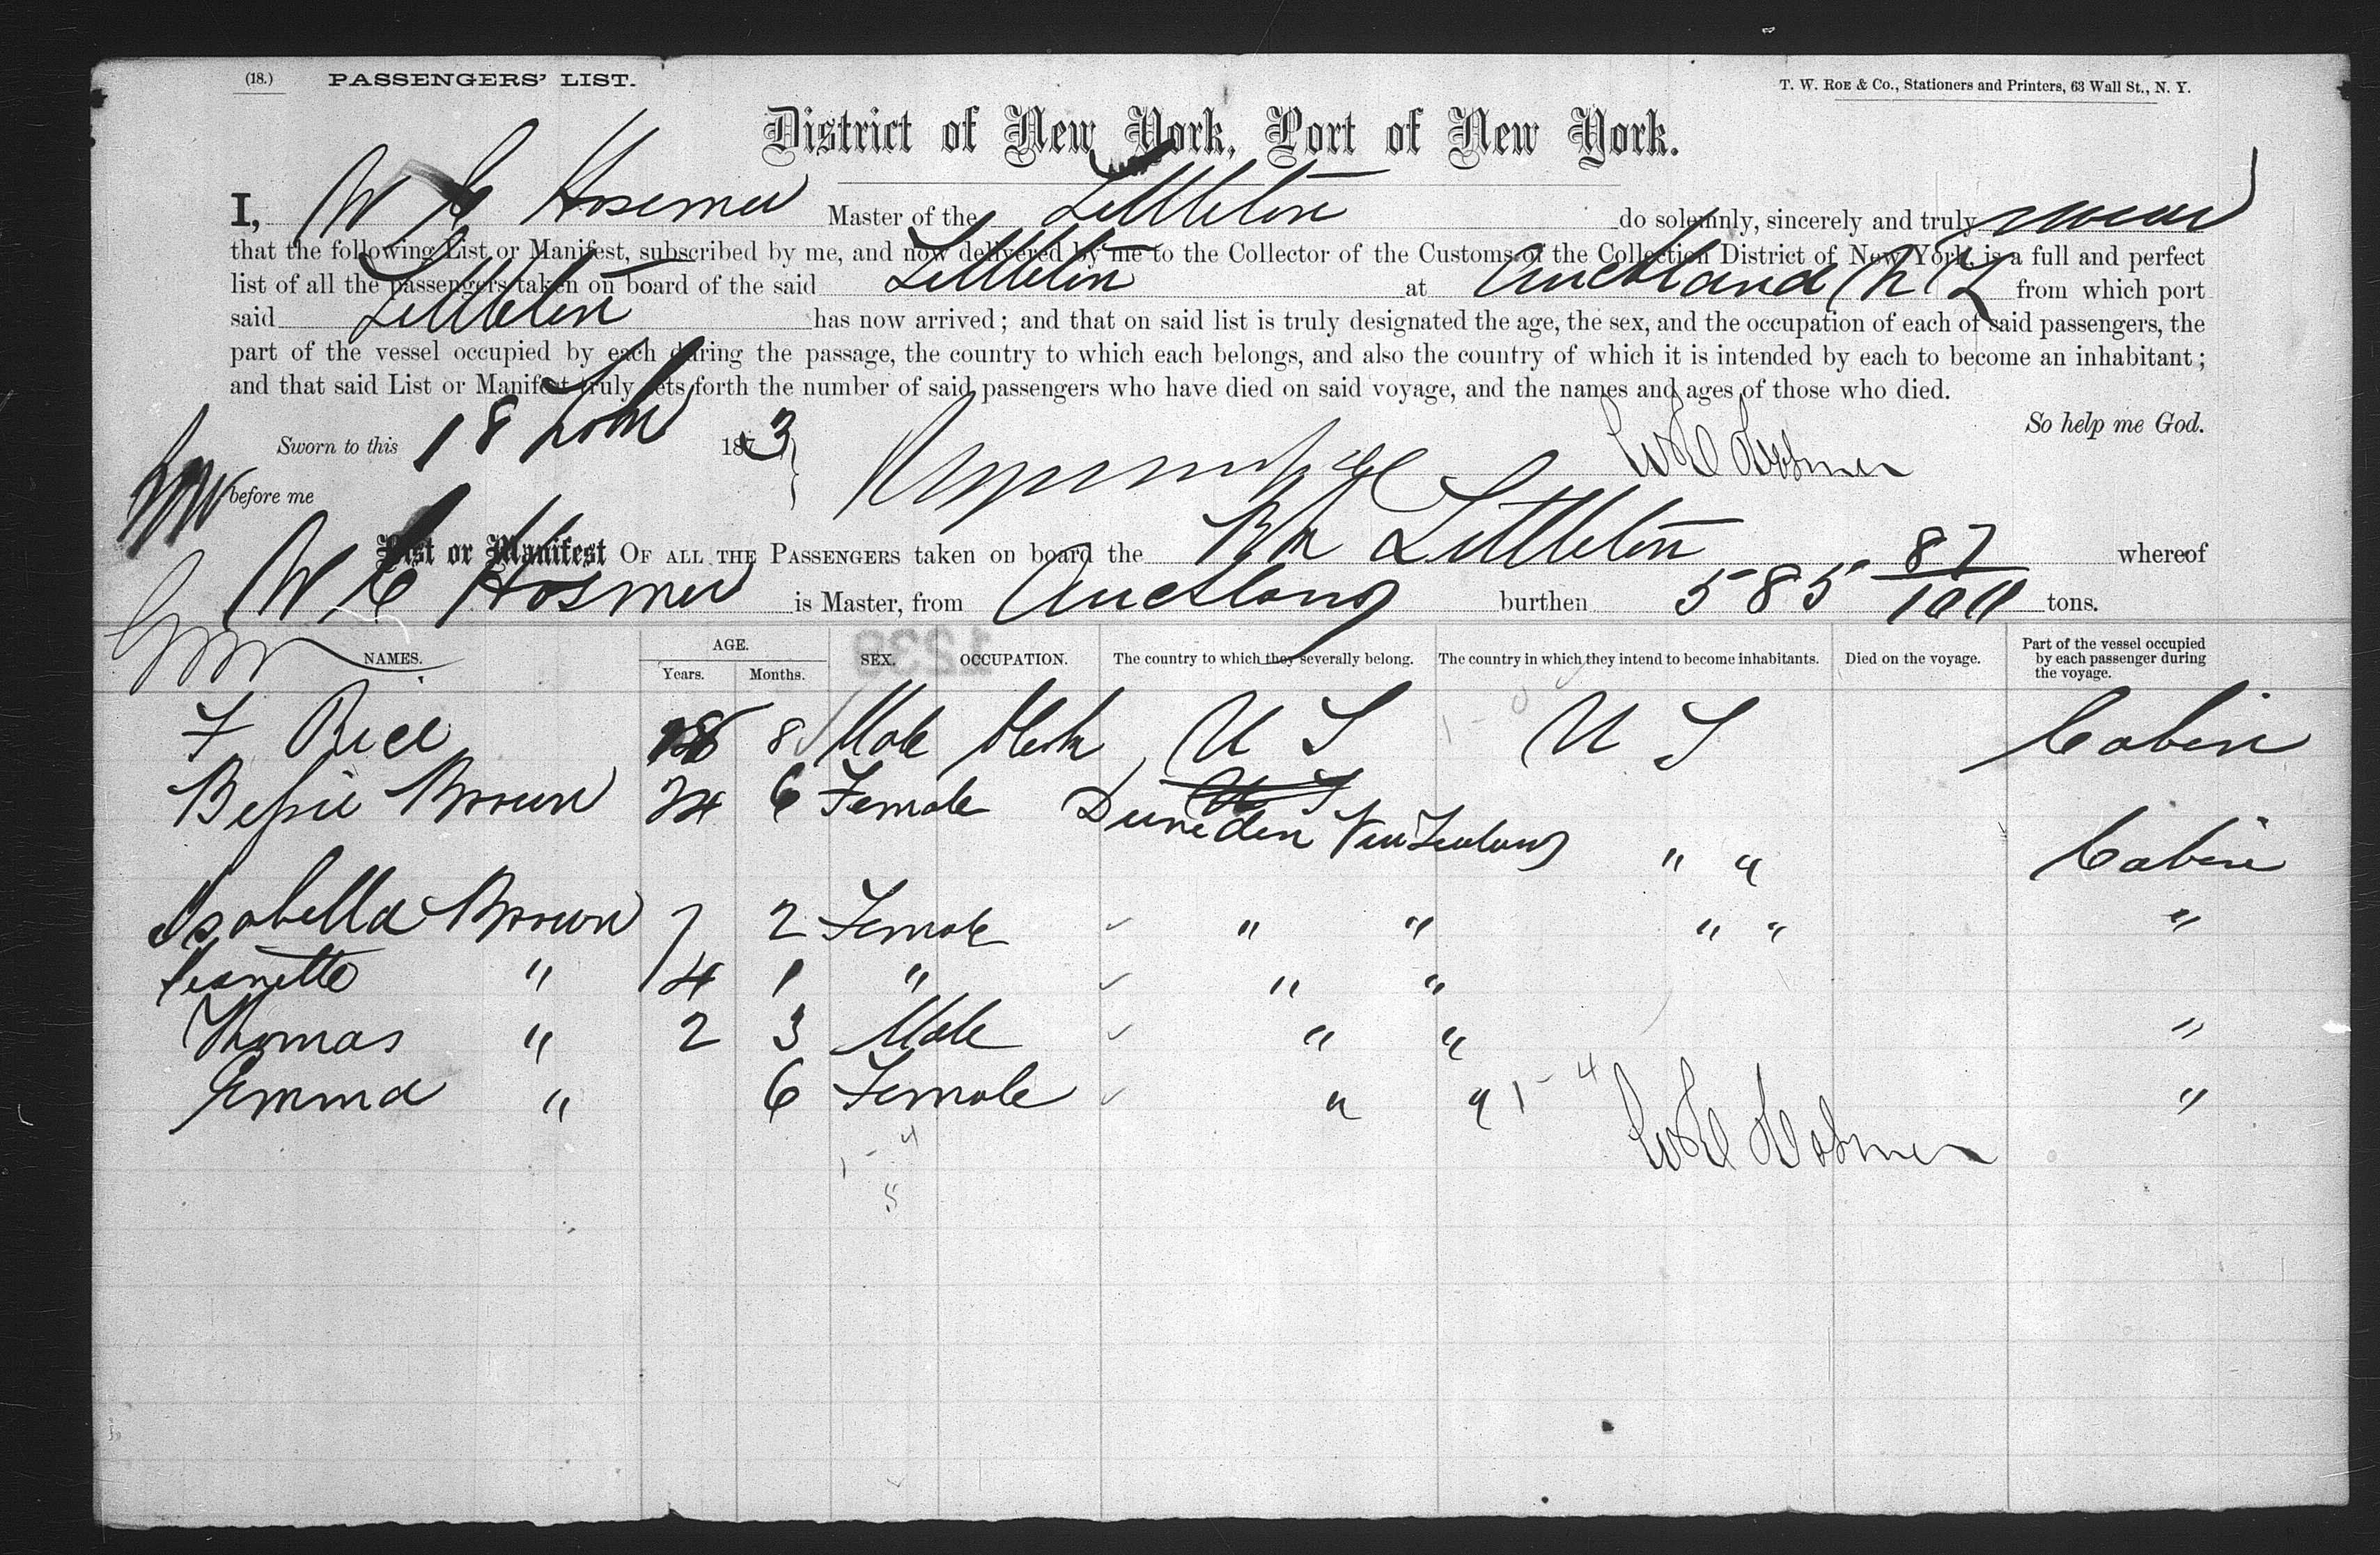 (18.) PASSENGERS' LIST. T. W. ROE & Co., Stationers and Printers, 63 Wall St., N. Y.
District of New York, Port of New York.
I, W C Hosmer Master of the Littleton do solemnly, sincerely and truly swear
that the following List or Manifest, subscribed by me, and now delivered by me to the Collector of the Customs of the Collection District of New York, is a full and perfect
list of all the passengers taken on board of the said Littleton at Auckland N Z from which port
said Littleton has now arrived; and that on said list is truly designated the age, the sex, and the occupation of each of said passengers, the
part of the vessel occupied by each during the passage, the country to which each belongs, and also the country of which it is intended by each to become an inhabitant;
and that said List or Manifest truly sets forth the number of said passengers who have died on said voyage, and the names and ages of those who died.
So help me God.
Sworn to this 18 1873
W C Hosmer
before me
List or Manifest OF ALL THE PASSENGERS taken on board the Bk Littleton whereof
W C Hosmer is Master, from Auckland burthen 585 87/100 tons.
1239
NAMES. AGE. Years. Months. SEX. OCCUPATION. The country to which they severally belong. The country in which they intend to become inhabitants. Died on the voyage. Part of the vessel occupied by each passenger during the voyage.
F Rice 8 Male U S U S Cabin
Bessie Brown 24 6 Female U S
Duneden New Zealand " " Cabin
Isabella Brown 7 2 Female " " " " "
Jeanette " 4 1 " " "
Thomas " 2 3 Male " " "
Emma " 6 Female " " 1-4 "
W C Hosmer
1-4
5